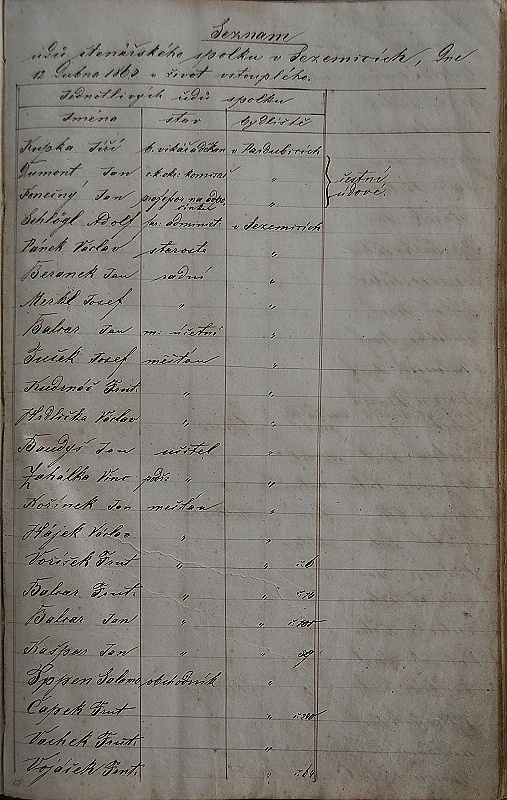 Seznam
údů čtenářského spolku v Sezemicích, Dne
12 Dubna 1863 v život vstouplého.
Jednotlivých údů spolku
Jména stav bydliště
Kupka Jiří b. vikář a děkan v Pardubicích
Dumont Jan c.k. okr. komisař „
Konečný Jan professor na 
Schlögl Adolf administ. v Sezemicích
čestní
údové.
Vaněk Václav starosta „
Beranek Jan radní „
Merkl Josef „ „
Balcar Jan m. účetní „
Dušek Josef měšťan „
Kudrnáč Frnt. „ „
Hrdlička Václav „ „
Baudyš Jan učitel „
Zahálka Vinc „
Košinek Jan měšťan „
Hájek Václav „ „
Voříšek Frnt „ „ č. 6
Balcar Frnt. „ „
Balcar Jan „ „
Kašpar Jan „ „
Eppen Salamo obchodník „
Čapek Frnt „
Vachek Frnt. „
Vojáček Frnt. „ č. 64